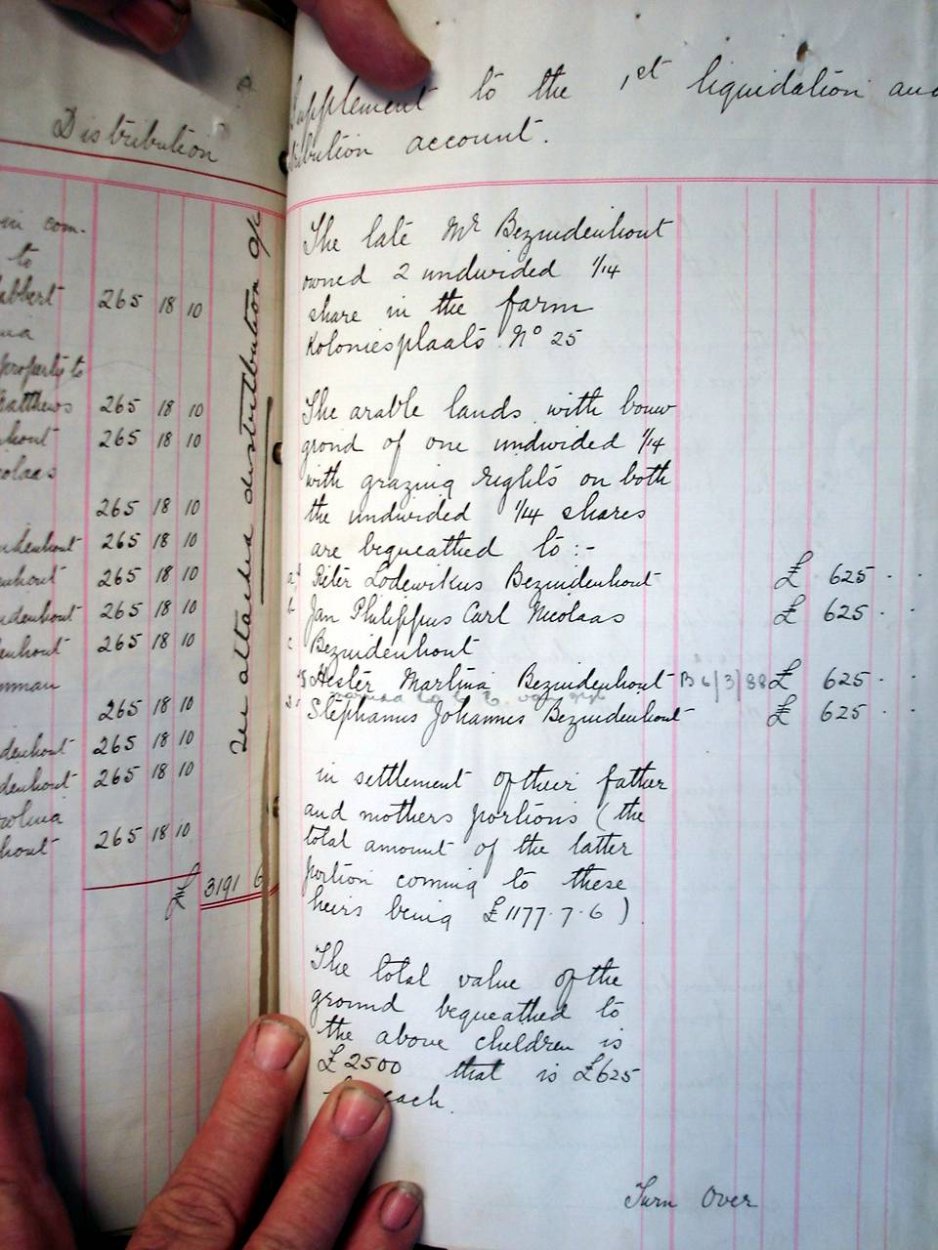 Distribution
in com.
to
abbert 265 18 10
property to
Matthews 265 18 10
265 18 10
265 18 10
265 18 10
265 18 10
265 18 10
265 18 10
265 18 10
265 18 10
265 18 10
265 18 10
£ 3191 6
See attached distribution
Supplement to the 1st liquidation and
tribution account.
The late Mr Bezuidenhout
owned 2 undivided 1/14
share in the farm
Koloniesplaats No 25
The arable lands with bouw
grond of one undivided 1/14
with grazing rights on both
the undivided 1/14 shares
are bequeathed to :-
a Pieter Lodewikus Bezuidenhout £ 625 . .
b Jan Philippus Carl Nicolaas £ 625 . .
c Bezuidenhout
Hester Martina Bezuidenhout B 6/3/88 £ 625 . .
Stephanus Johannes Bezuidenhout £ 625 . .
in settlement of their father
and mothers portions (the
total amount of the latter
portion coming to these
heirs being £1177.7.6)
The total value of the
ground bequeathed to
the above children is
£2500 that is £625
each.
Turn Over